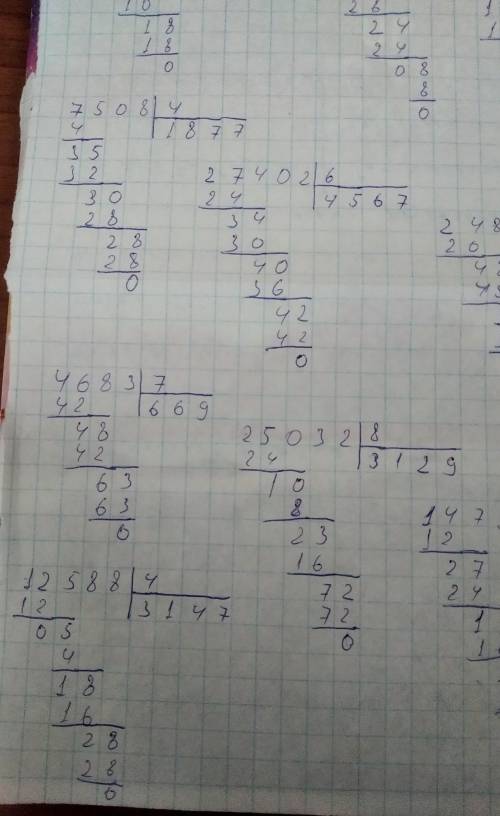 18
18
0
24
24
08
8
0
7508 4
4 1877
35
32
30
28
28
28
0
27402 6
24 4567
34
30
40
36
42
42
0
4683 7
42 669
48
42
63
63
0
25032 8
24 3129
10
8
23
16
72
72
0
12588 4
12 3147
05
4
18
16
28
28
0
248
20
147
12
27
24
1